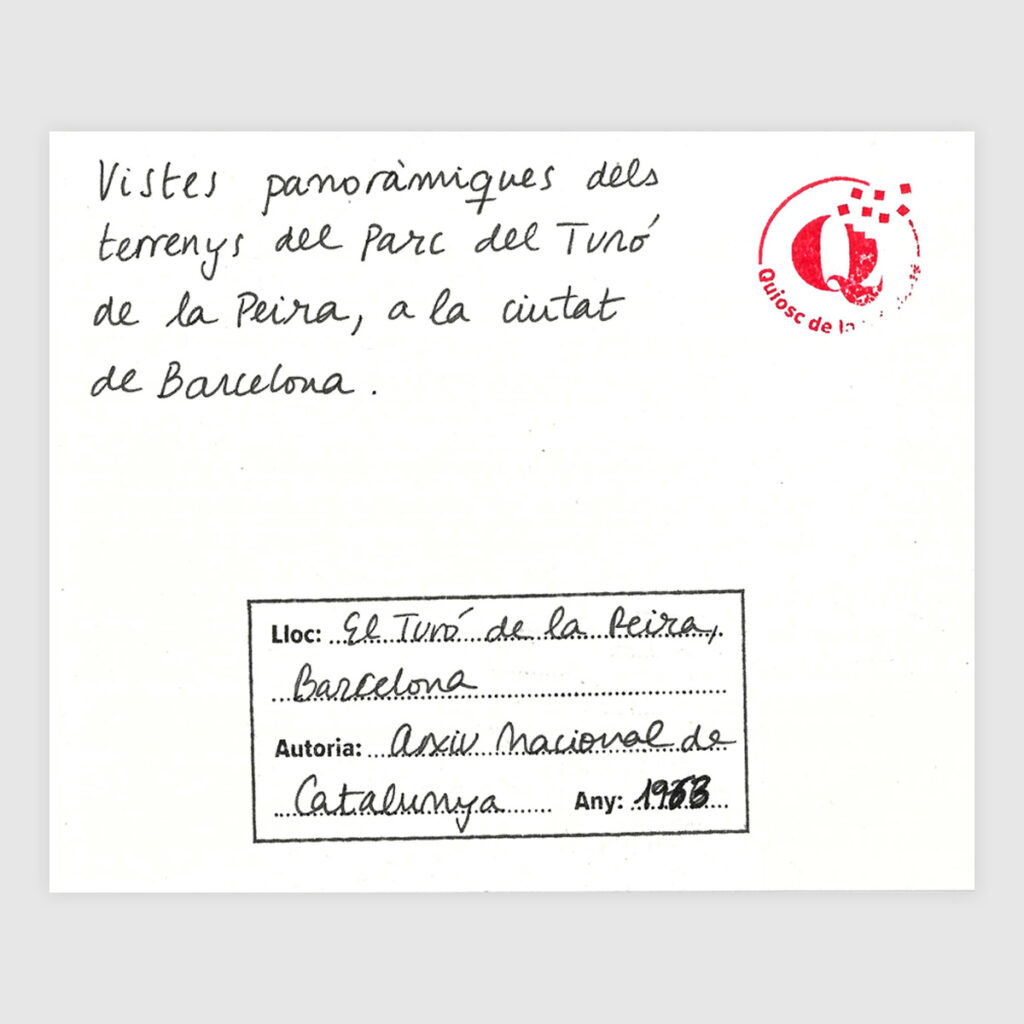 Vistes panoràmiques dels
terrenys del Parc del Turó
de la Peira, a la ciutat
de Barcelona.
Quiosc de la
Lloc: El Turó de la Peira,
Barcelona
Autoria: Arxiu Nacional de
Catalunya Any: